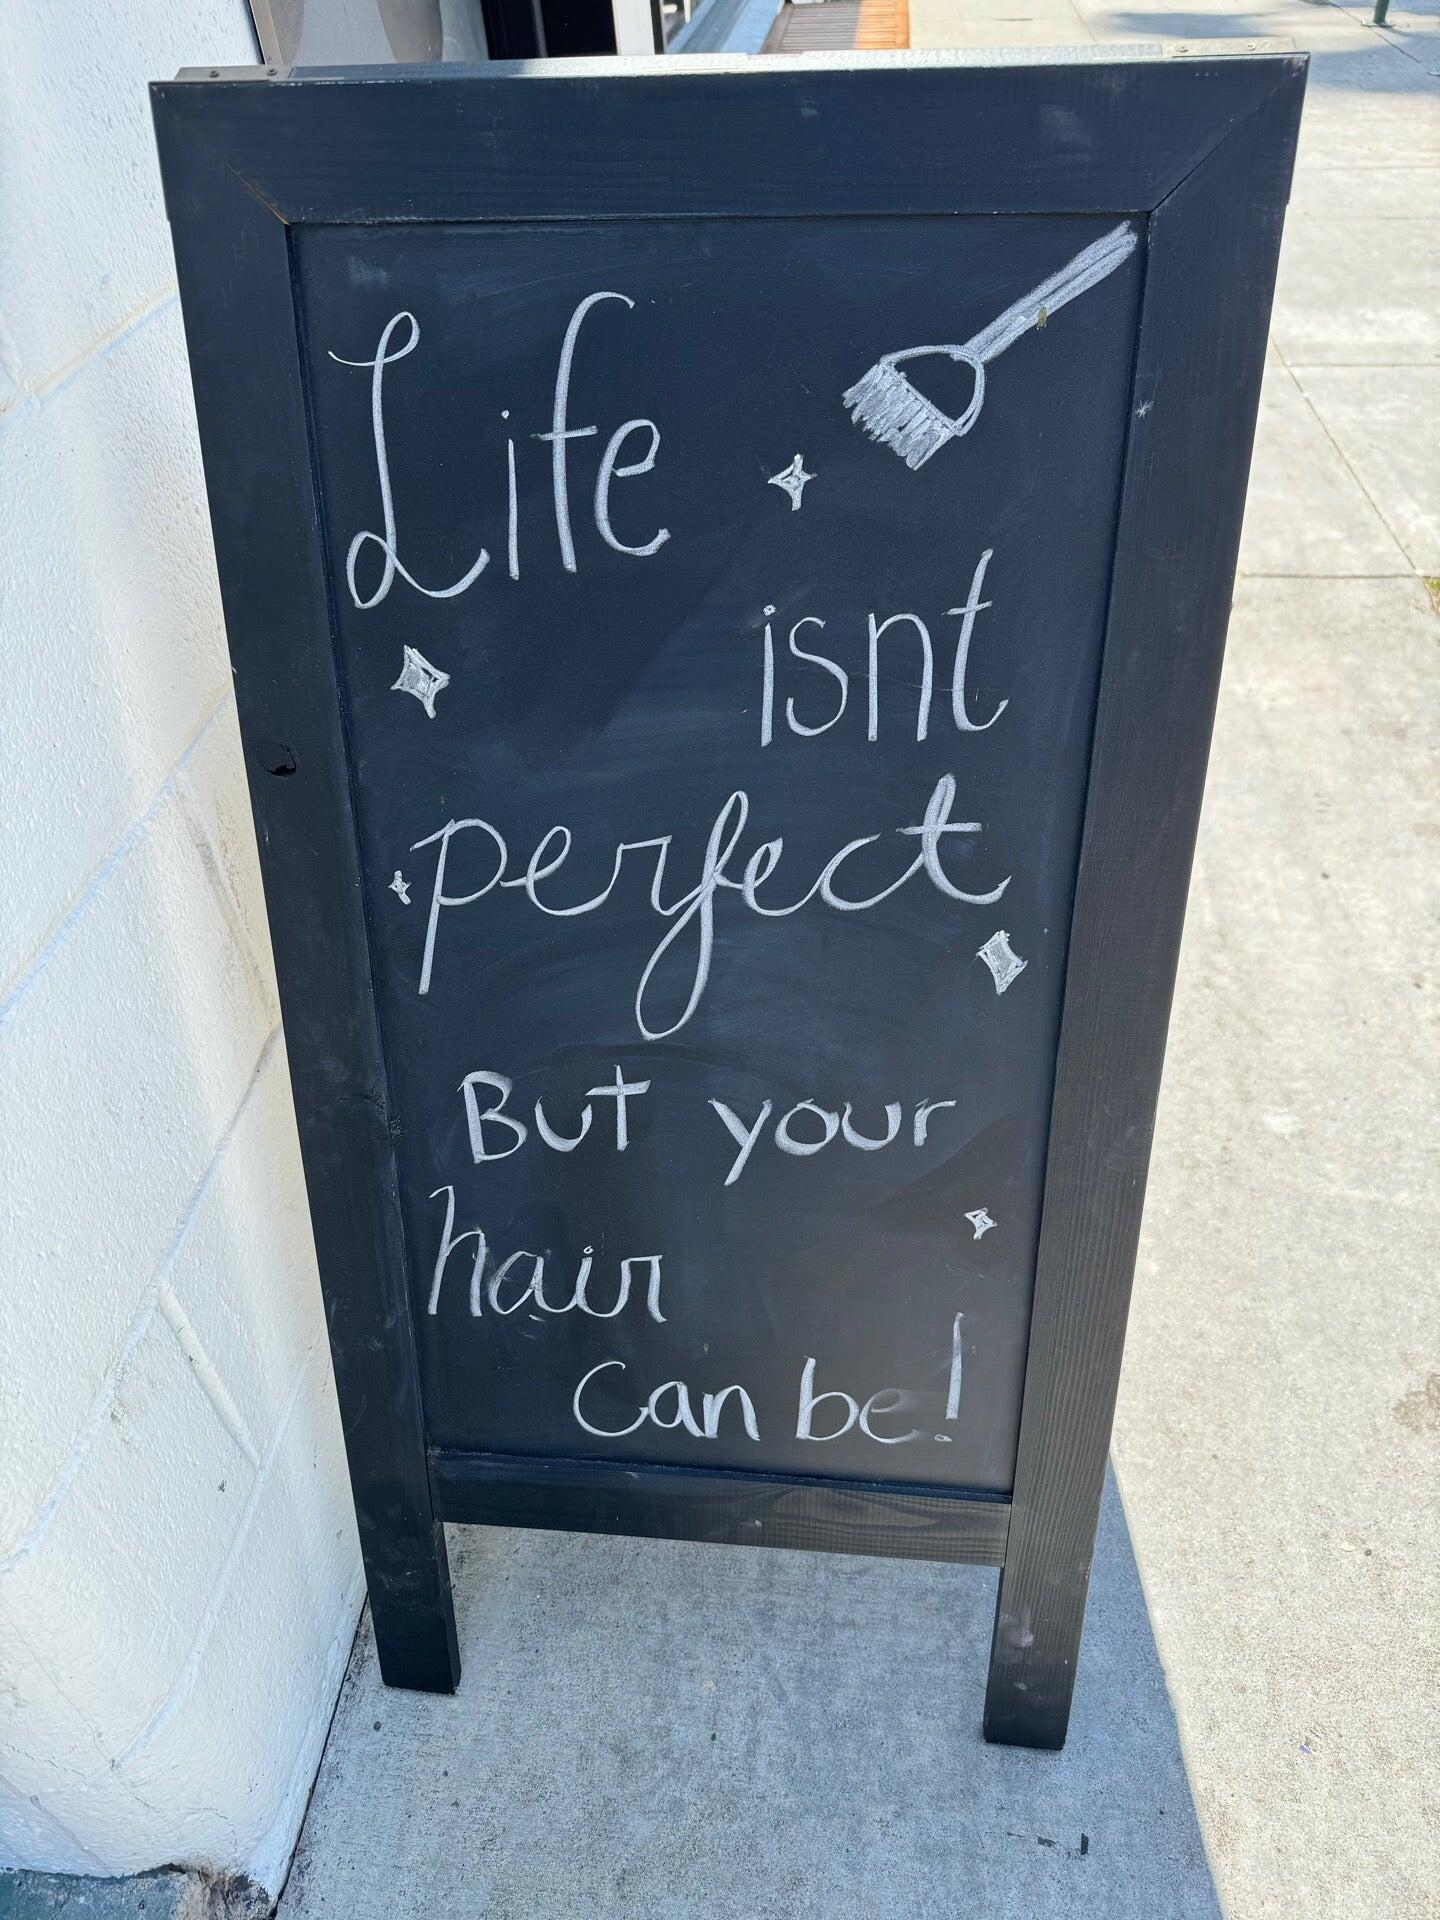 Life
isnt
perfect
But your
hair
can be!